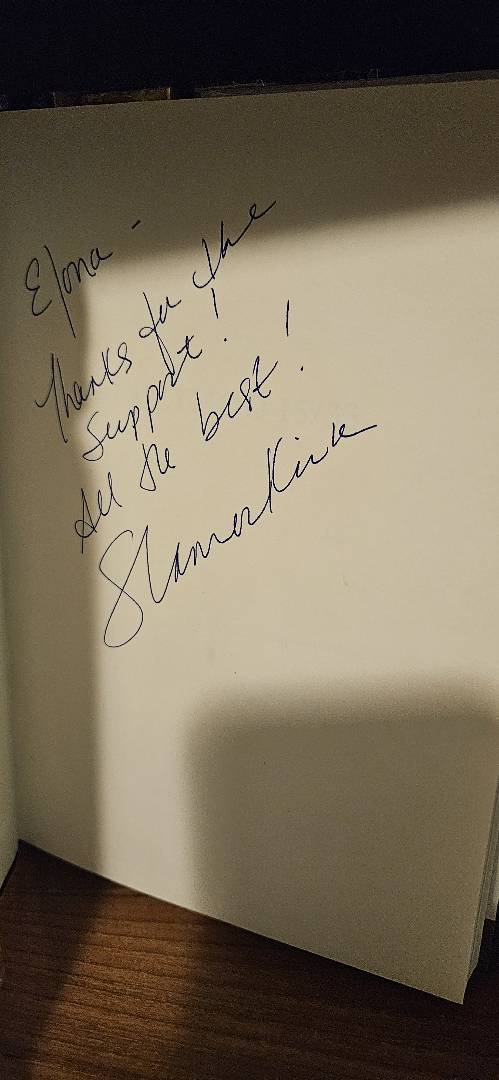 Elona -
Thanks for the
support!
All the best!